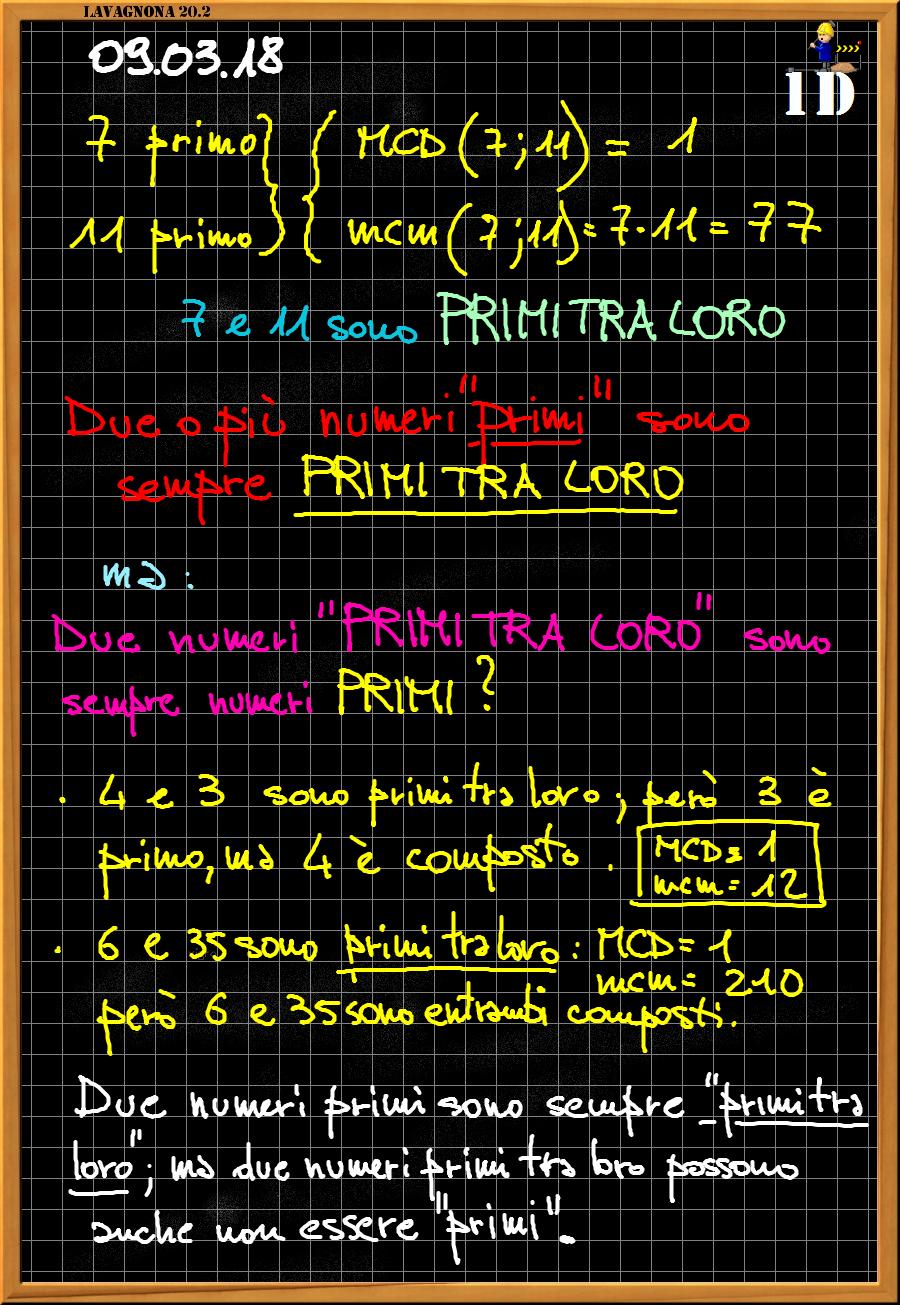 LAVAGNONA 20.2
09.03.18
1D
7 primo } { MCD (7;11) = 1
11 primo } { mcm (7;11) = 7·11 = 77
7 e 11 sono PRIMI TRA LORO
Due o più numeri "primi" sono
sempre PRIMI TRA LORO
ma:
Due numeri "PRIMI TRA LORO" sono
sempre numeri PRIMI?
· 4 e 3 sono primi tra loro; però 3 è
primo, ma 4 è composto.
MCD = 1
mcm = 12
· 6 e 35 sono primi tra loro: MCD = 1
mcm = 210
però 6 e 35 sono entrambi composti.
Due numeri primi sono sempre "primi tra
loro"; ma due numeri primi tra loro possono
anche non essere "primi".